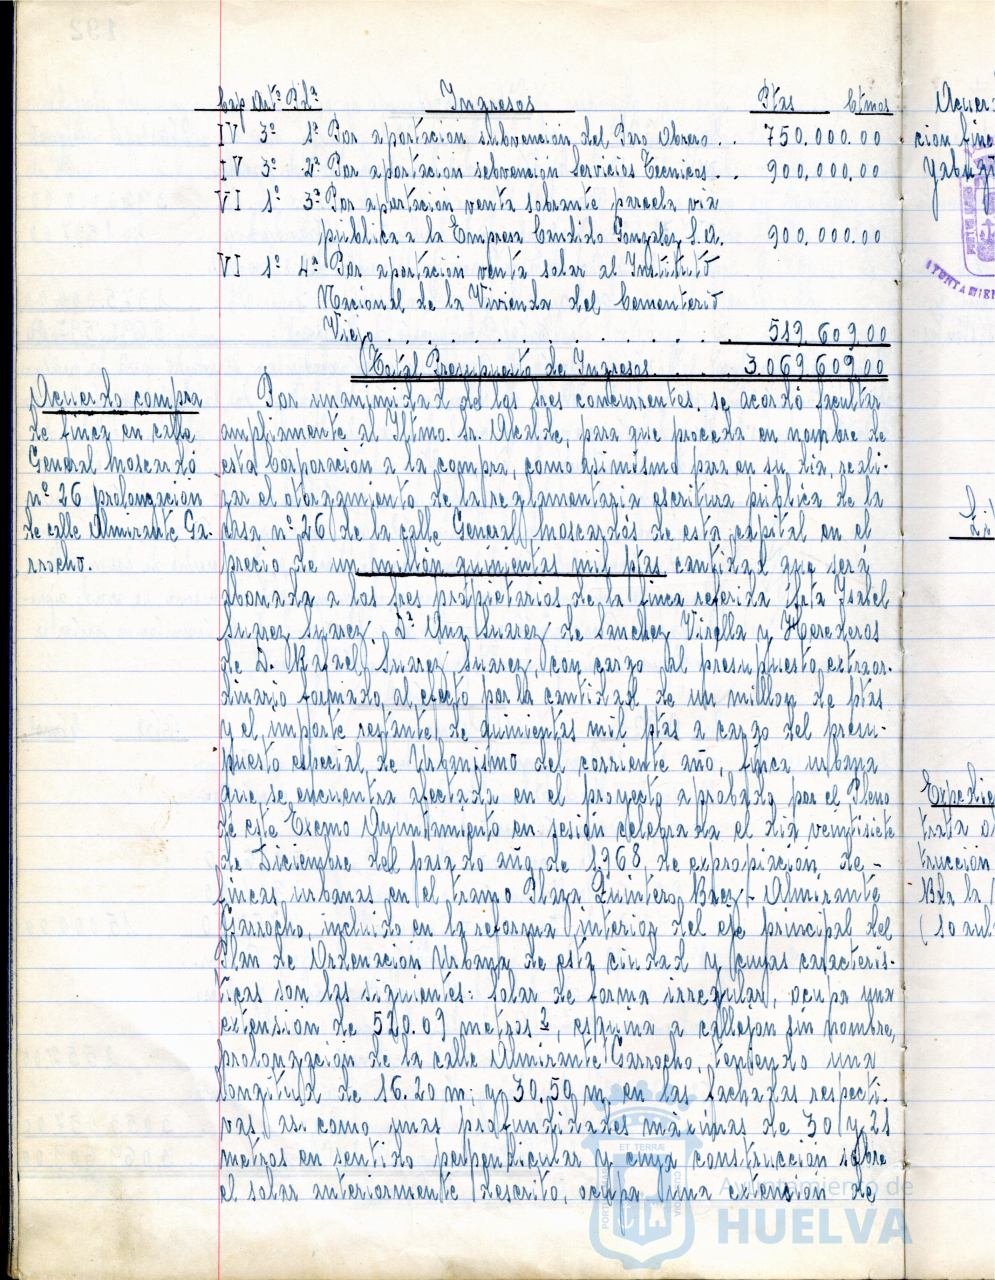 Cap Artº Pdª Ingresos Ptas Ctmos
IV 3º 1ª Por aportación subvención del Paro Obrero . . 750.000.00
IV 3º 2ª Por aportación subvención Servicios Tecnicos . . 900.000.00
VI 1º 3ª Por aportación venta sobrante parcela vía
pública a la Empresa Candido Gonzalez S.A. 900.000.00
VI 1º 4ª Por aportación venta solar al Instituto
Nacional de la Vivienda del Cementerio
Viejo . . . . . . . . . . . 519.609.00
Total Presupuesto de Ingresos . . . . 3.069.609.00
Acuerdo compra
de finca en calle
General Moscardó
nº 26 prolongación
de calle Almirante Ga-
rrocho.
Por unanimidad de los tres concurrentes, se acordó facultar
ampliamente al Iltmo. Sr. Alcalde, para que proceda en nombre de
esta Corporación a la compra, como asimismo para en su día, reali-
zar el otorgamiento de la reglamentaria escritura pública de la
casa nº 26 de la calle General Moscardós de esta capital en el
precio de un millón quinientas mil ptas cantidad que será
abonada a los tres propietarios de la finca referida Srta Isabel
Suarez Suarez, Dª Ana Suarez de Sanchez Virella y Herederos
de D. Rafael Suarez Suarez, con cargo al presupuesto extraor-
dinario formado al efecto por la cantidad de un millon de ptas
y el importe restante de quinientas mil ptas a cargo del presu-
puesto especial de Urbanismo del corriente año, finca urbana
que se encuentra afectada en el proyecto aprobado por el Pleno
de este Excmo Ayuntamiento en sesión celebrada el día veintisiete
de Diciembre del pasado año de 1968, de expropiación de -
fincas urbanas en el tramo Plaza Quintero Baez - Almirante
Garrocho, incluido en la reforma interior del eje principal del
Plan de Ordenación Urbana de esta ciudad y cuyas caracterís-
ticas son las siguientes: Solar de forma irregular, ocupa una
extensión de 520.09 metros 2, esquina a callejon sin nombre,
prolongación de la calle Almirante Garrocho, teniendo una
longitud de 16.20 m; y 30.50 m, en las fachadas respecti-
vas así como unas profundidades máximas de 30 y 21
metros en sentido perpendicular y cuya construcción sobre
el solar anteriormente descrito, ocupa una extensión de
Ayuntamiento de
HUELVA